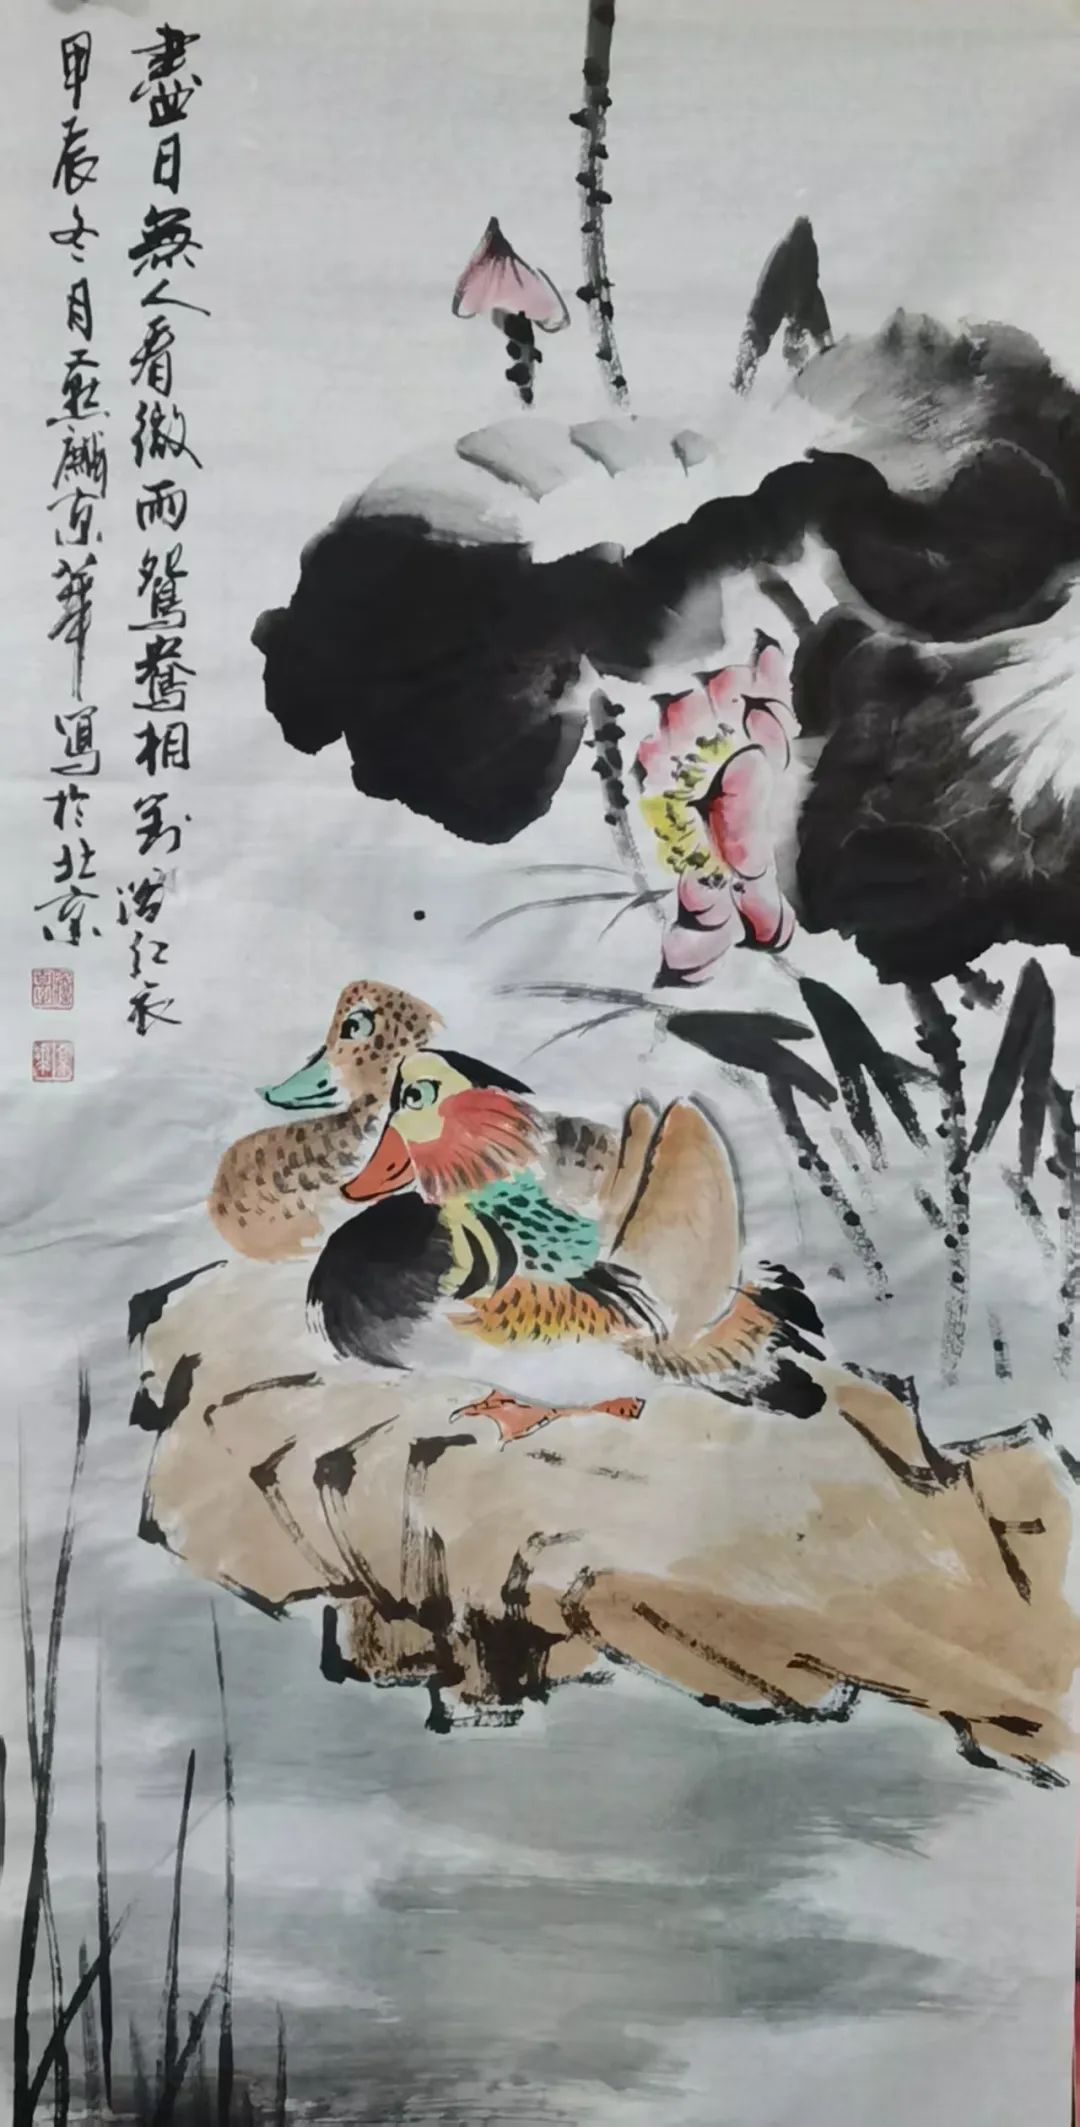 盡日無人看微雨鴛鴦相對浴紅衣
甲辰冬月燕麟京華寫於北京